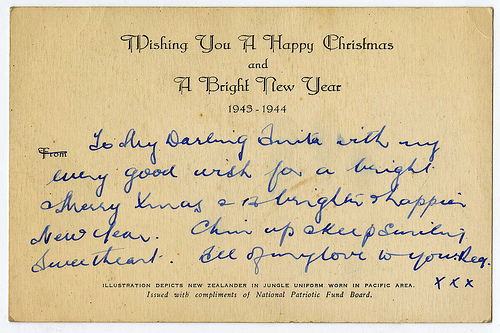 Wishing You A Happy Christmas
and
A Bright New Year
1943-1944
From
To My Darling Anita with my
every good wish for a bright
Merry Xmas & a brighter & happier
New Year. Chin up & keep smiling
Sweetheart. All of my love to you Reg.
x x x
ILLUSTRATION DEPICTS NEW ZEALANDER IN JUNGLE UNIFORM WORN IN PACIFIC AREA.
Issued with compliments of National Patriotic Fund Board.